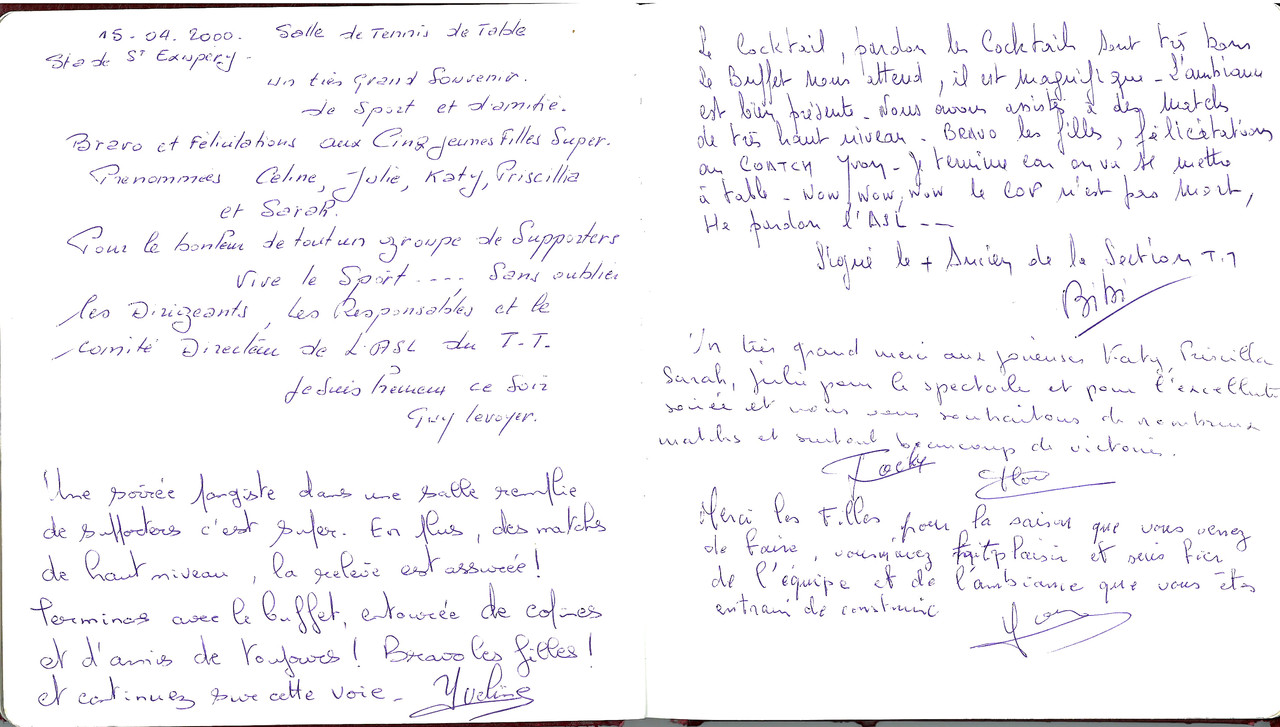 15-04.2000. Salle de Tennis de Table
Stade St Exupéry-
un très Grand Souvenir.
de Sport et d'amitié.
Bravo et Félicitations aux Cinq jeunes Filles Super.
Prénommées Céline, Julie, Katy, Priscillia
et Sarah.
Pour le bonheur de tout un groupe de Supporters
Vive le Sport.---- Sans oublier
les Dirigeants, les Responsables et le
Comité Directeur de L'ASL du T.T.
Je suis heureux ce Soir
Guy levoyer.
Une soirée pongiste dans une salle remplie
de supporters c'est super. En plus, des matchs
de haut niveau, la relève est assurée!
Terminer avec le buffet, entourée de copines
et d'amis de toujours! Bravo les filles!
et continuez sur cette voie- Yveline
Le Cocktail, pardon les Cocktails sont très bons
le Buffet nous attend, il est magnifique- L'ambiance
est bien présente- Nous avons assisté à des Matchs
de très haut niveau- Bravo les filles, félicitations
au COATCH Yvon- Je termine car on va se mettre
à table- Now, Now, Now le COP n'est pas Mort,
He pardon l'ASL --
Signé le + Ancien de la Section T.T
BiBi
Un très grand merci aux joueuses Katy, Priscilla
Sarah, Julie pour le spectacle et pour l'excellente
soirée et nous vous souhaitons de nombreux
matchs et surtout beaucoup de victoires.
Merci les Filles pour la saison que vous venez
de faire, vous m'avez fait plaisir et suis fier
de l'équipe et de l'ambiance que vous êtes
entrain de construire
Yvon